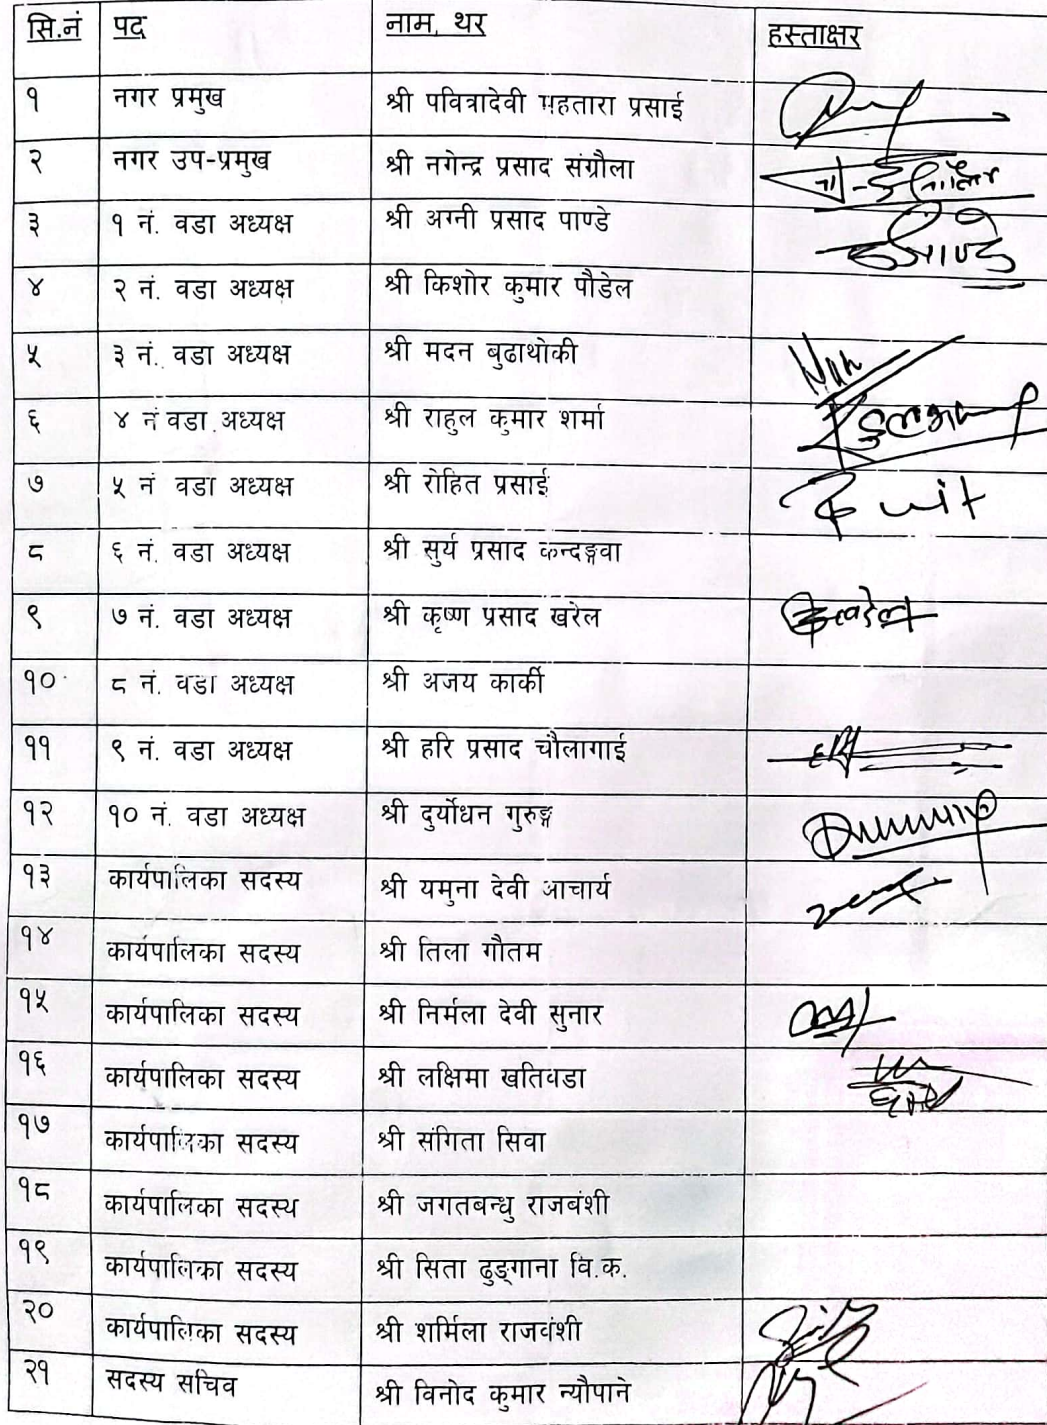 सि.नं पद नाम, थर हस्ताक्षर
१ नगर प्रमुख श्री पवित्रादेवी महतारा प्रसाई
२ नगर उप-प्रमुख श्री नगेन्द्र प्रसाद संग्रौला
३ १ नं. वडा अध्यक्ष श्री अग्नी प्रसाद पाण्डे
४ २ नं. वडा अध्यक्ष श्री किशोर कुमार पौडेल
५ ३ नं. वडा अध्यक्ष श्री मदन बुढाथोकी
६ ४ नं वडा अध्यक्ष श्री राहुल कुमार शर्मा
७ ५ नं वडा अध्यक्ष श्री रोहित प्रसाई
८ ६ नं. वडा अध्यक्ष श्री सुर्य प्रसाद कन्दङ्गवा
९ ७ नं. वडा अध्यक्ष श्री कृष्ण प्रसाद खरेल
१० ८ नं. वडा अध्यक्ष श्री अजय कार्की
११ ९ नं. वडा अध्यक्ष श्री हरि प्रसाद चौलागाई
१२ १० नं. वडा अध्यक्ष श्री दुर्योधन गुरुङ्ग
१३ कार्यपालिका सदस्य श्री यमुना देवी आचार्य
१४ कार्यपालिका सदस्य श्री तिला गौतम
१५ कार्यपालिका सदस्य श्री निर्मला देवी सुनार
१६ कार्यपालिका सदस्य श्री लक्षिमा खतिवडा
१७ कार्यपालिका सदस्य श्री संगिता सिवा
१८ कार्यपालिका सदस्य श्री जगतबन्धु राजबंशी
१९ कार्यपालिका सदस्य श्री सिता ढुङ्गाना वि.क.
२० कार्यपालिका सदस्य श्री शर्मिला राजवंशी
२१ सदस्य सचिव श्री विनोद कुमार न्यौपाने